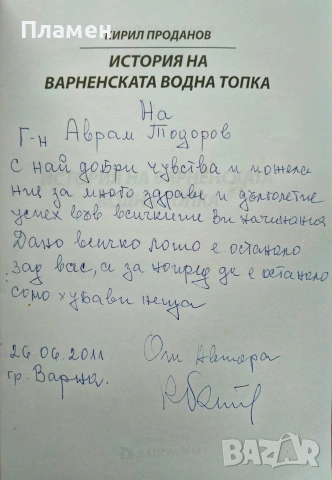 Пламен
КИРИЛ ПРОДАНОВ
ИСТОРИЯ НА
ВАРНЕНСКАТА ВОДНА ТОПКА
На
Г-н Аврам Тодоров
с най добри чувства и пожела
ния за много здраве и дълголетие
успех във всичките Ви начинания
Дано всичко лошо е останало
зад вас, а за напред да е останало
само хубави неща
26.06.2011 От автора
гр. Варна.
BAZAR
bg